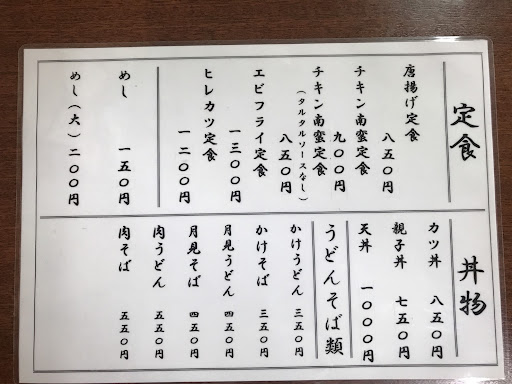 定食
唐揚げ定食 八五〇円
チキン南蛮定食 九〇〇円
チキン南蛮定食 八五〇円
（タルタルソースなし）
エビフライ定食 一三〇〇円
ヒレカツ定食 一二〇〇円
めし 一五〇円
めし（大） 二〇〇円
丼物
カツ丼 八五〇円
親子丼 七五〇円
天丼 一〇〇〇円
うどんそば類
かけうどん 三五〇円
かけそば 三五〇円
月見うどん 四五〇円
月見そば 四五〇円
肉うどん 五五〇円
肉そば 五五〇円